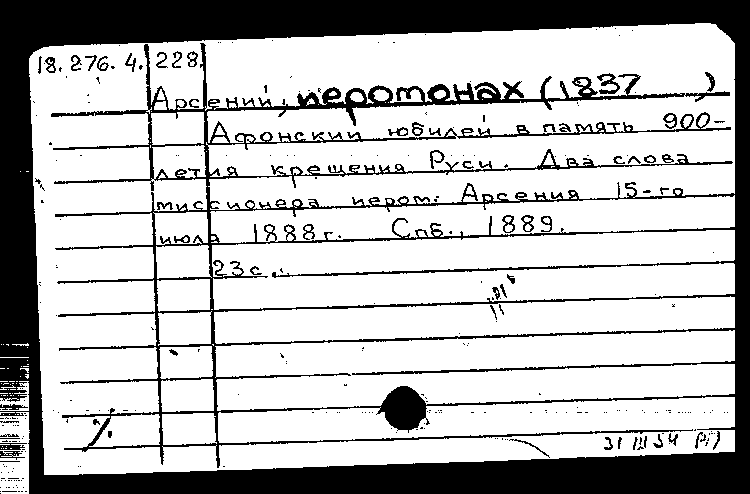 18.276.4.228.
Арсений, иеромонах (1837 )
Афонский юбилей в память 900-
летия крещения Руси. Два слова
миссионера иером. Арсения 15-го
июля 1888г. Спб., 1889.
23с.
31 III 54